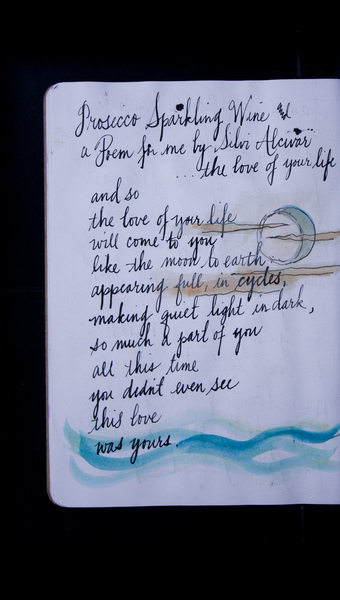 Prosecco Sparkling Wine &
a Poem for me by Silvi Alcivar
...the love of your life
and so
the love of your life
will come to you
like the moon to earth
appearing full, in cycles,
making quiet light in dark,
so much a part of you
all this time
you didn't even see
this love
was yours.